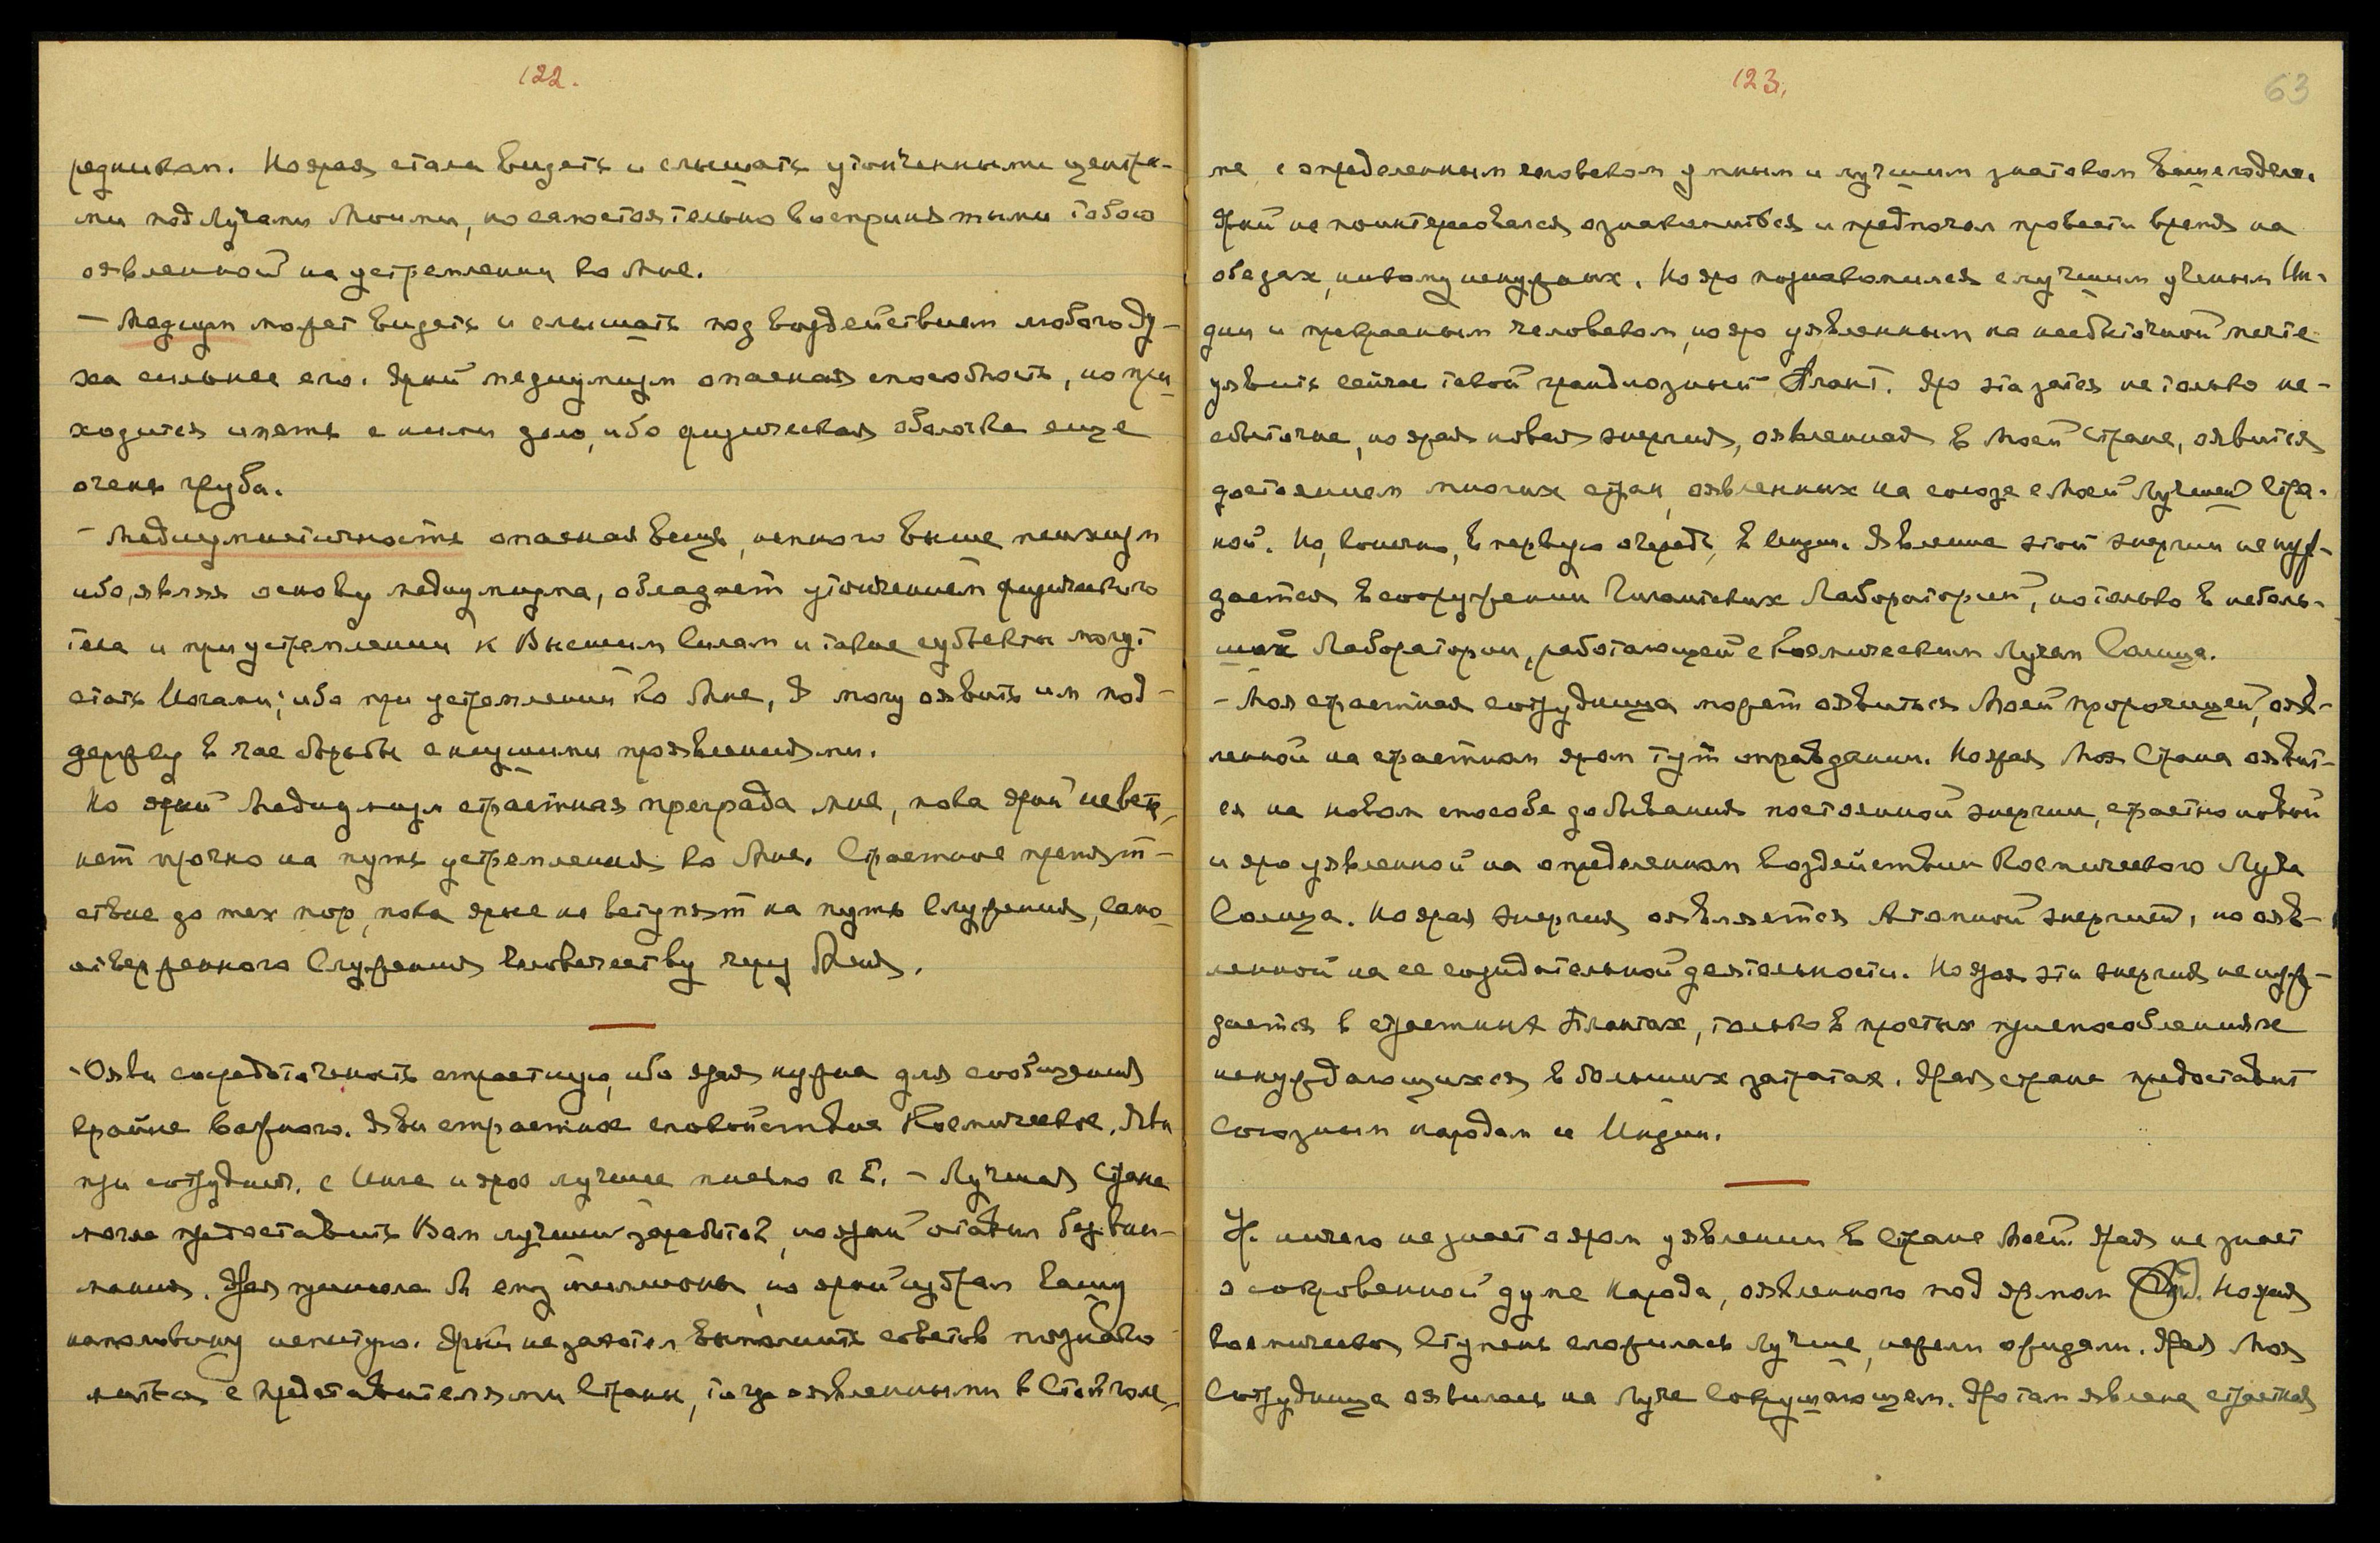 122.
редникам. Но ярая стала видеть и слышать утонченными центра-
ми под Лучами Моими, но самостоятельно воспринятыми тобою
оявленной на устремлении ко Мне.
— Медиум может видеть и слышать под воздействием любого ду-
ха сильнее его. Ярый медиумизм опасная способность, но при
ходится иметь с ними дело, ибо физическая оболочка еще
очень груба.
— Медиумистичность опасная вещь, немного выше психизм
ибо, являя основу медиумизма, обладает утончением физического
тела и при устремлении к Высшим Силам и такие субъекты могут
стать Йогами; ибо при устремлении ко Мне, Я могу оявить им под-
держку в час борьбы с низшими проявлениями.
Но ярый Медиумизм страстная преграда мне, пока ярый не вст-
нет прочно на путь устремления ко Мне. Страстное препят-
ствие до тех пор, пока ярые не вступят на путь Служения, Само
отверженного Служения Человечеству через Меня.
Ояви сосредоточенность страстную, ибо ярая нужна для сообщения
крайне важного. Яви страстное спокойствие Космическое. Яви
при сотруднич. с Инге и яро лучшее письмо к Е. — Лучшая Страна
могла предоставить Вам лучший заработок, но ярый оставил без вни-
мания. Ярая принесла бы ему миллионы, но ярый избрал Вашу
напольвину нищую. Ярый не захотел выполнить советов познако
миться с представителями Страны, тогда оявленными в Стокголь-
123.
63
ме с определенным человеком умным и лучшим знатоком Вашего дела.
Ярый не поинтересовался ознакомиться и предпочел провести время на
обедах, никому ненужных. Но яро познакомился с лучшим ученым Ин-
дии и прекрасным человеком, но яро уявленным на несбыточной мечте
уявить сейчас такой грандиозный Плант. Яро эта затея не только не-
сбыточна, но ярая новая энергия, оявленная в Моей Стране, оявится
достоянием многих стран, оявленных на союзе с Моей Лучшей Стра-
ной. Но, конечно, в первую очередь, в Индии. Явление этой энергии не нуж-
дается в сооружении Гигантских Лабораторий, но только в неболь-
шой Лаборатории, работающей с Космическим Лучем Солнца.
— Моя страстная сотрудница может оявиться Моей пророчицей, ояв-
ленной на страстном яром тут оправдании. Но ярая Моя Страна оявит-
ся на новом способе добывания постоянной энергии, страстно новой
и яро уявленной на определенном воздействии Космического Луча
Солнца. Но ярая энергия оявляется Атомной энергией, но ояв-
ленной на ее созидательной деятельности. Но ярая эта энергия не нуж-
дается в страстных Плантах, только в простых приспособлениях
ненуждающихся в больших затратах. Ярая страна предоставит
союзным народам и Индии.
У. ничего не знает о яром уявлении в Стране Моей. Ярая не знает
о сокровенной думе народа, оявленного под ярмом Но ярая
Космическая Ступень сложилась Лучше, нежели ожидали. Ярая Моя
Сотрудница оявилась на Луче Сокрушающем. Яро там явлена страстная